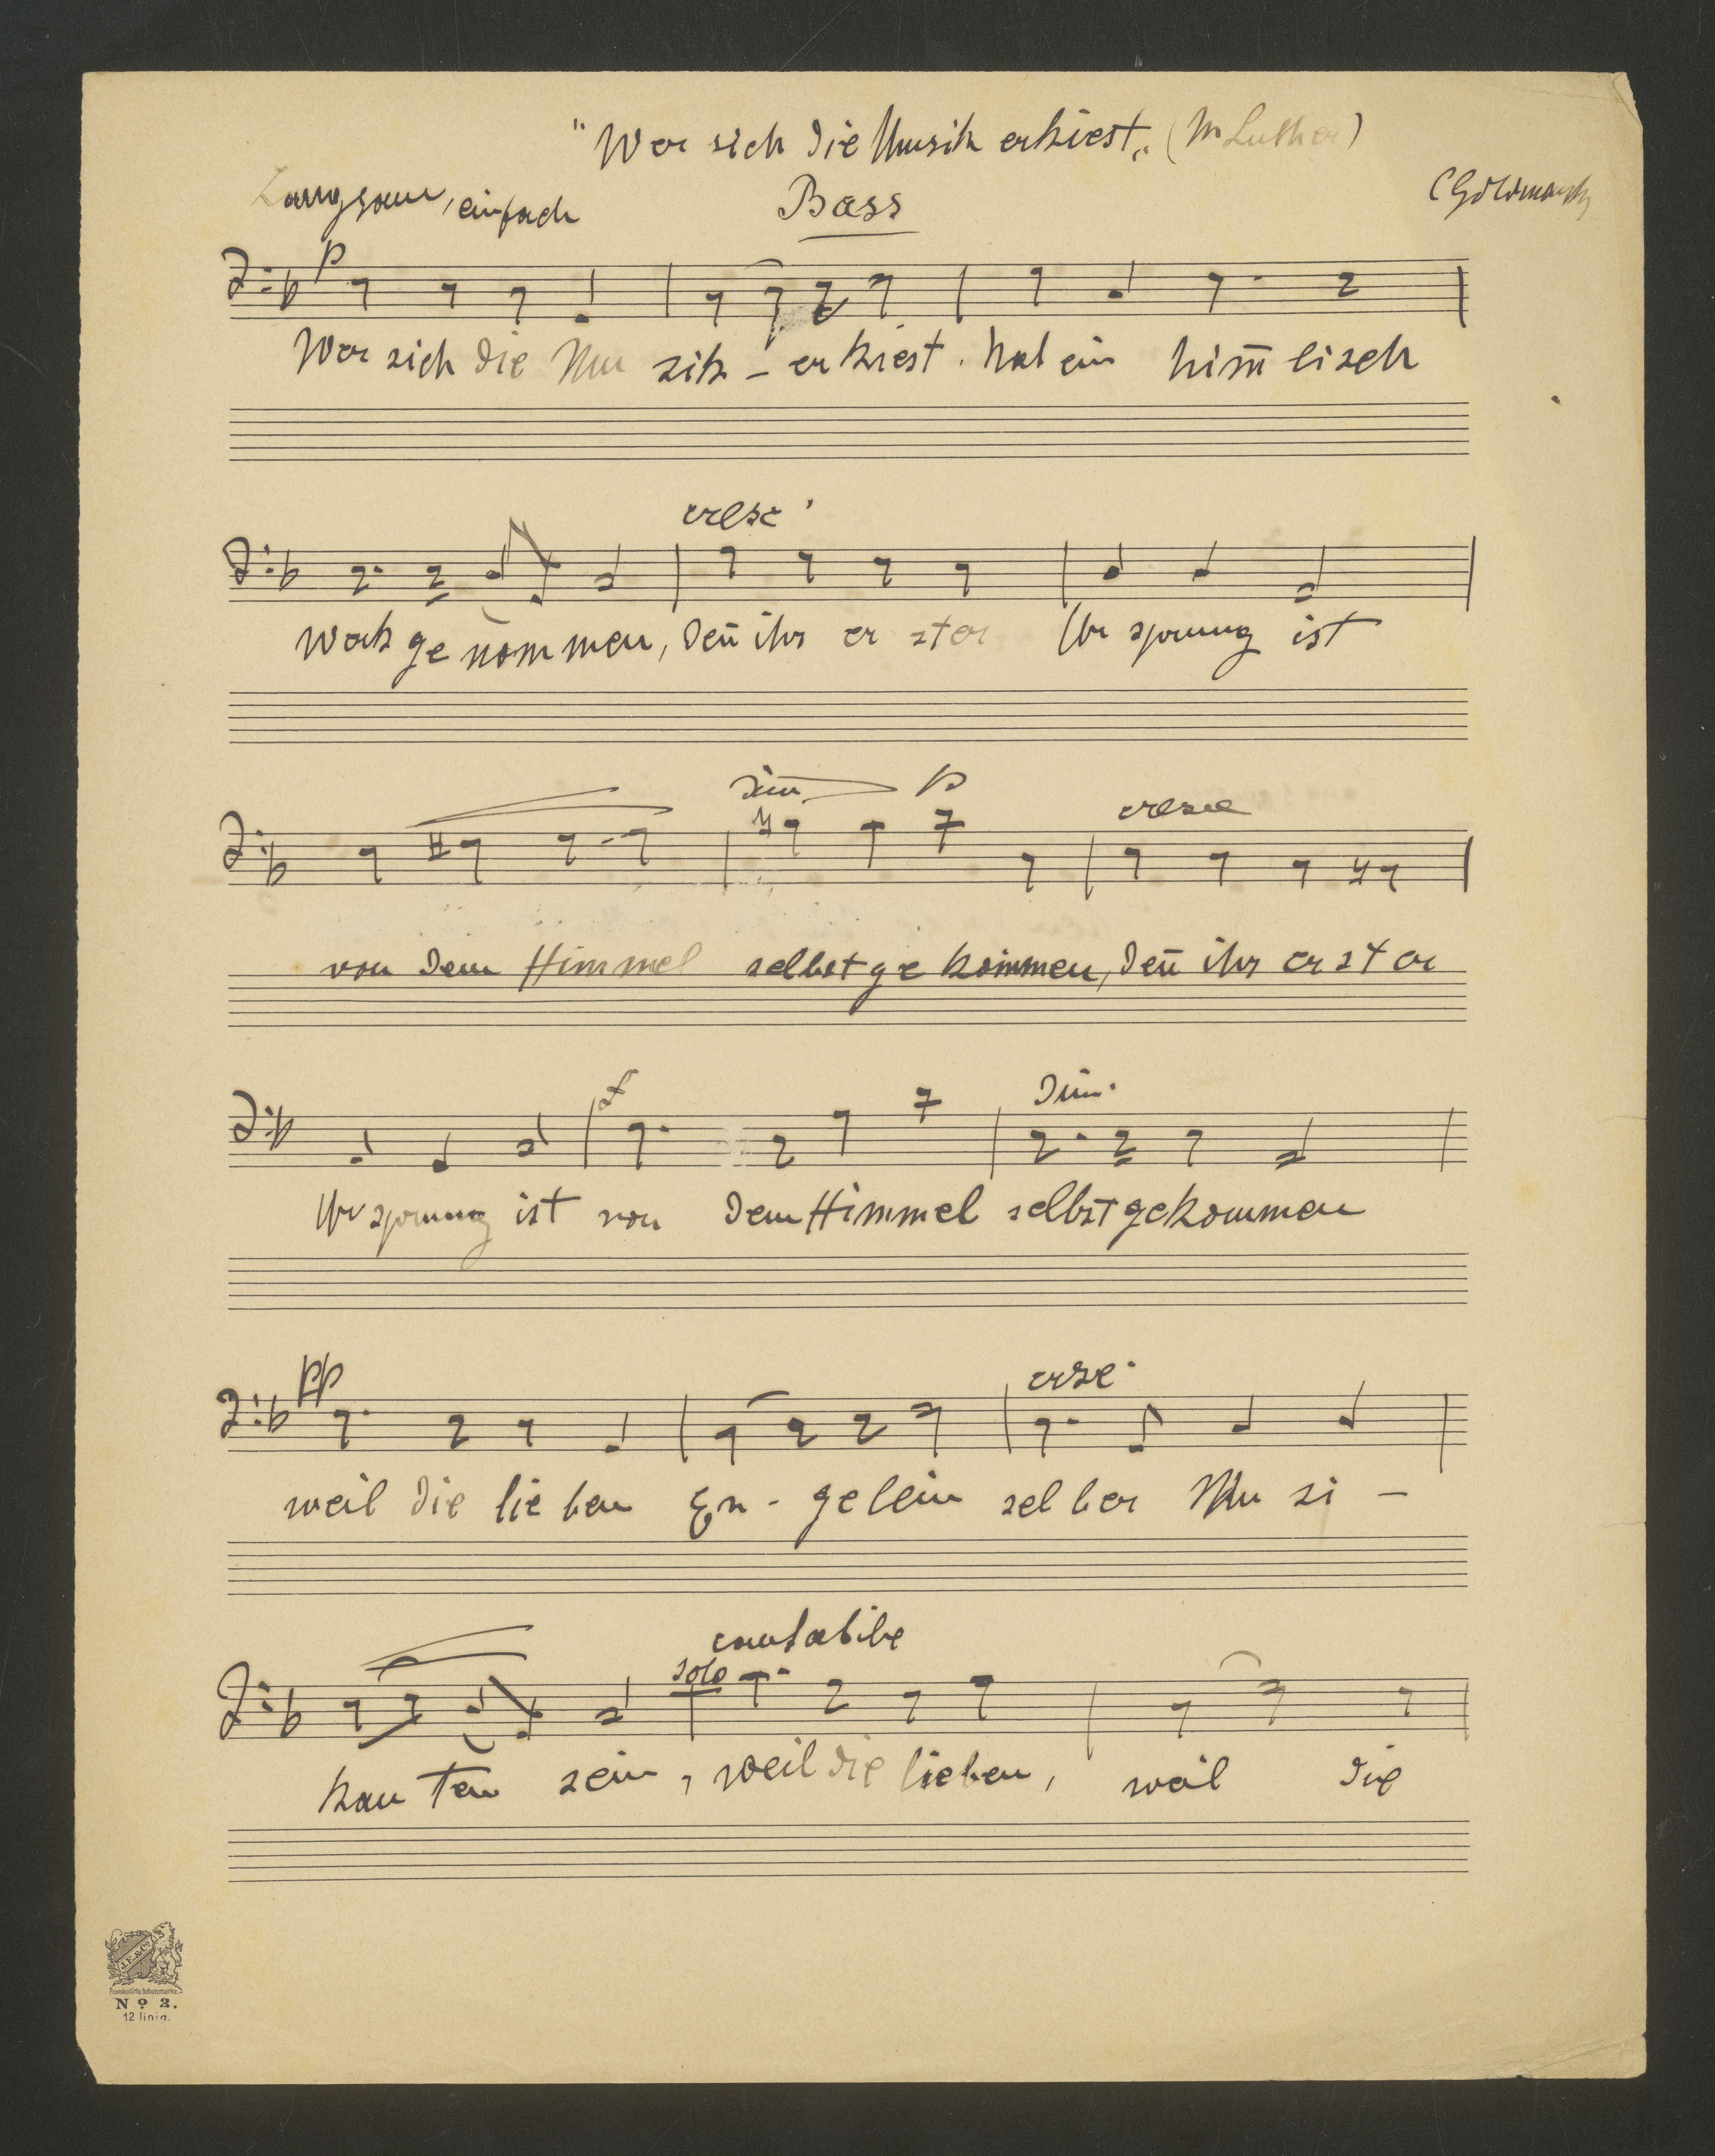 "Wer sich die Musik erkiest„ (M Luther)
Langsam, einfach Bass C Goldmark
p
Wer sich die Mu sik – er kiest. hat ein him̅ lisch
cresc.
Werk ge nom men, den̅ ihr er ster Ur sprung ist
dim p cresc
von dem Himmel selbst ge kommen, den̅ ihr er st er
f dim.
Ur sprung ist von dem Himmel selbst gekommen
pp cresc.
weil die lie ben En - gelein sel ber Mu si –
cantabile
solo
kan ten sein, weil die lieben, weil die
J.E.&Co
Protokollirte Schutzmarke.
No 2.
12 linig.